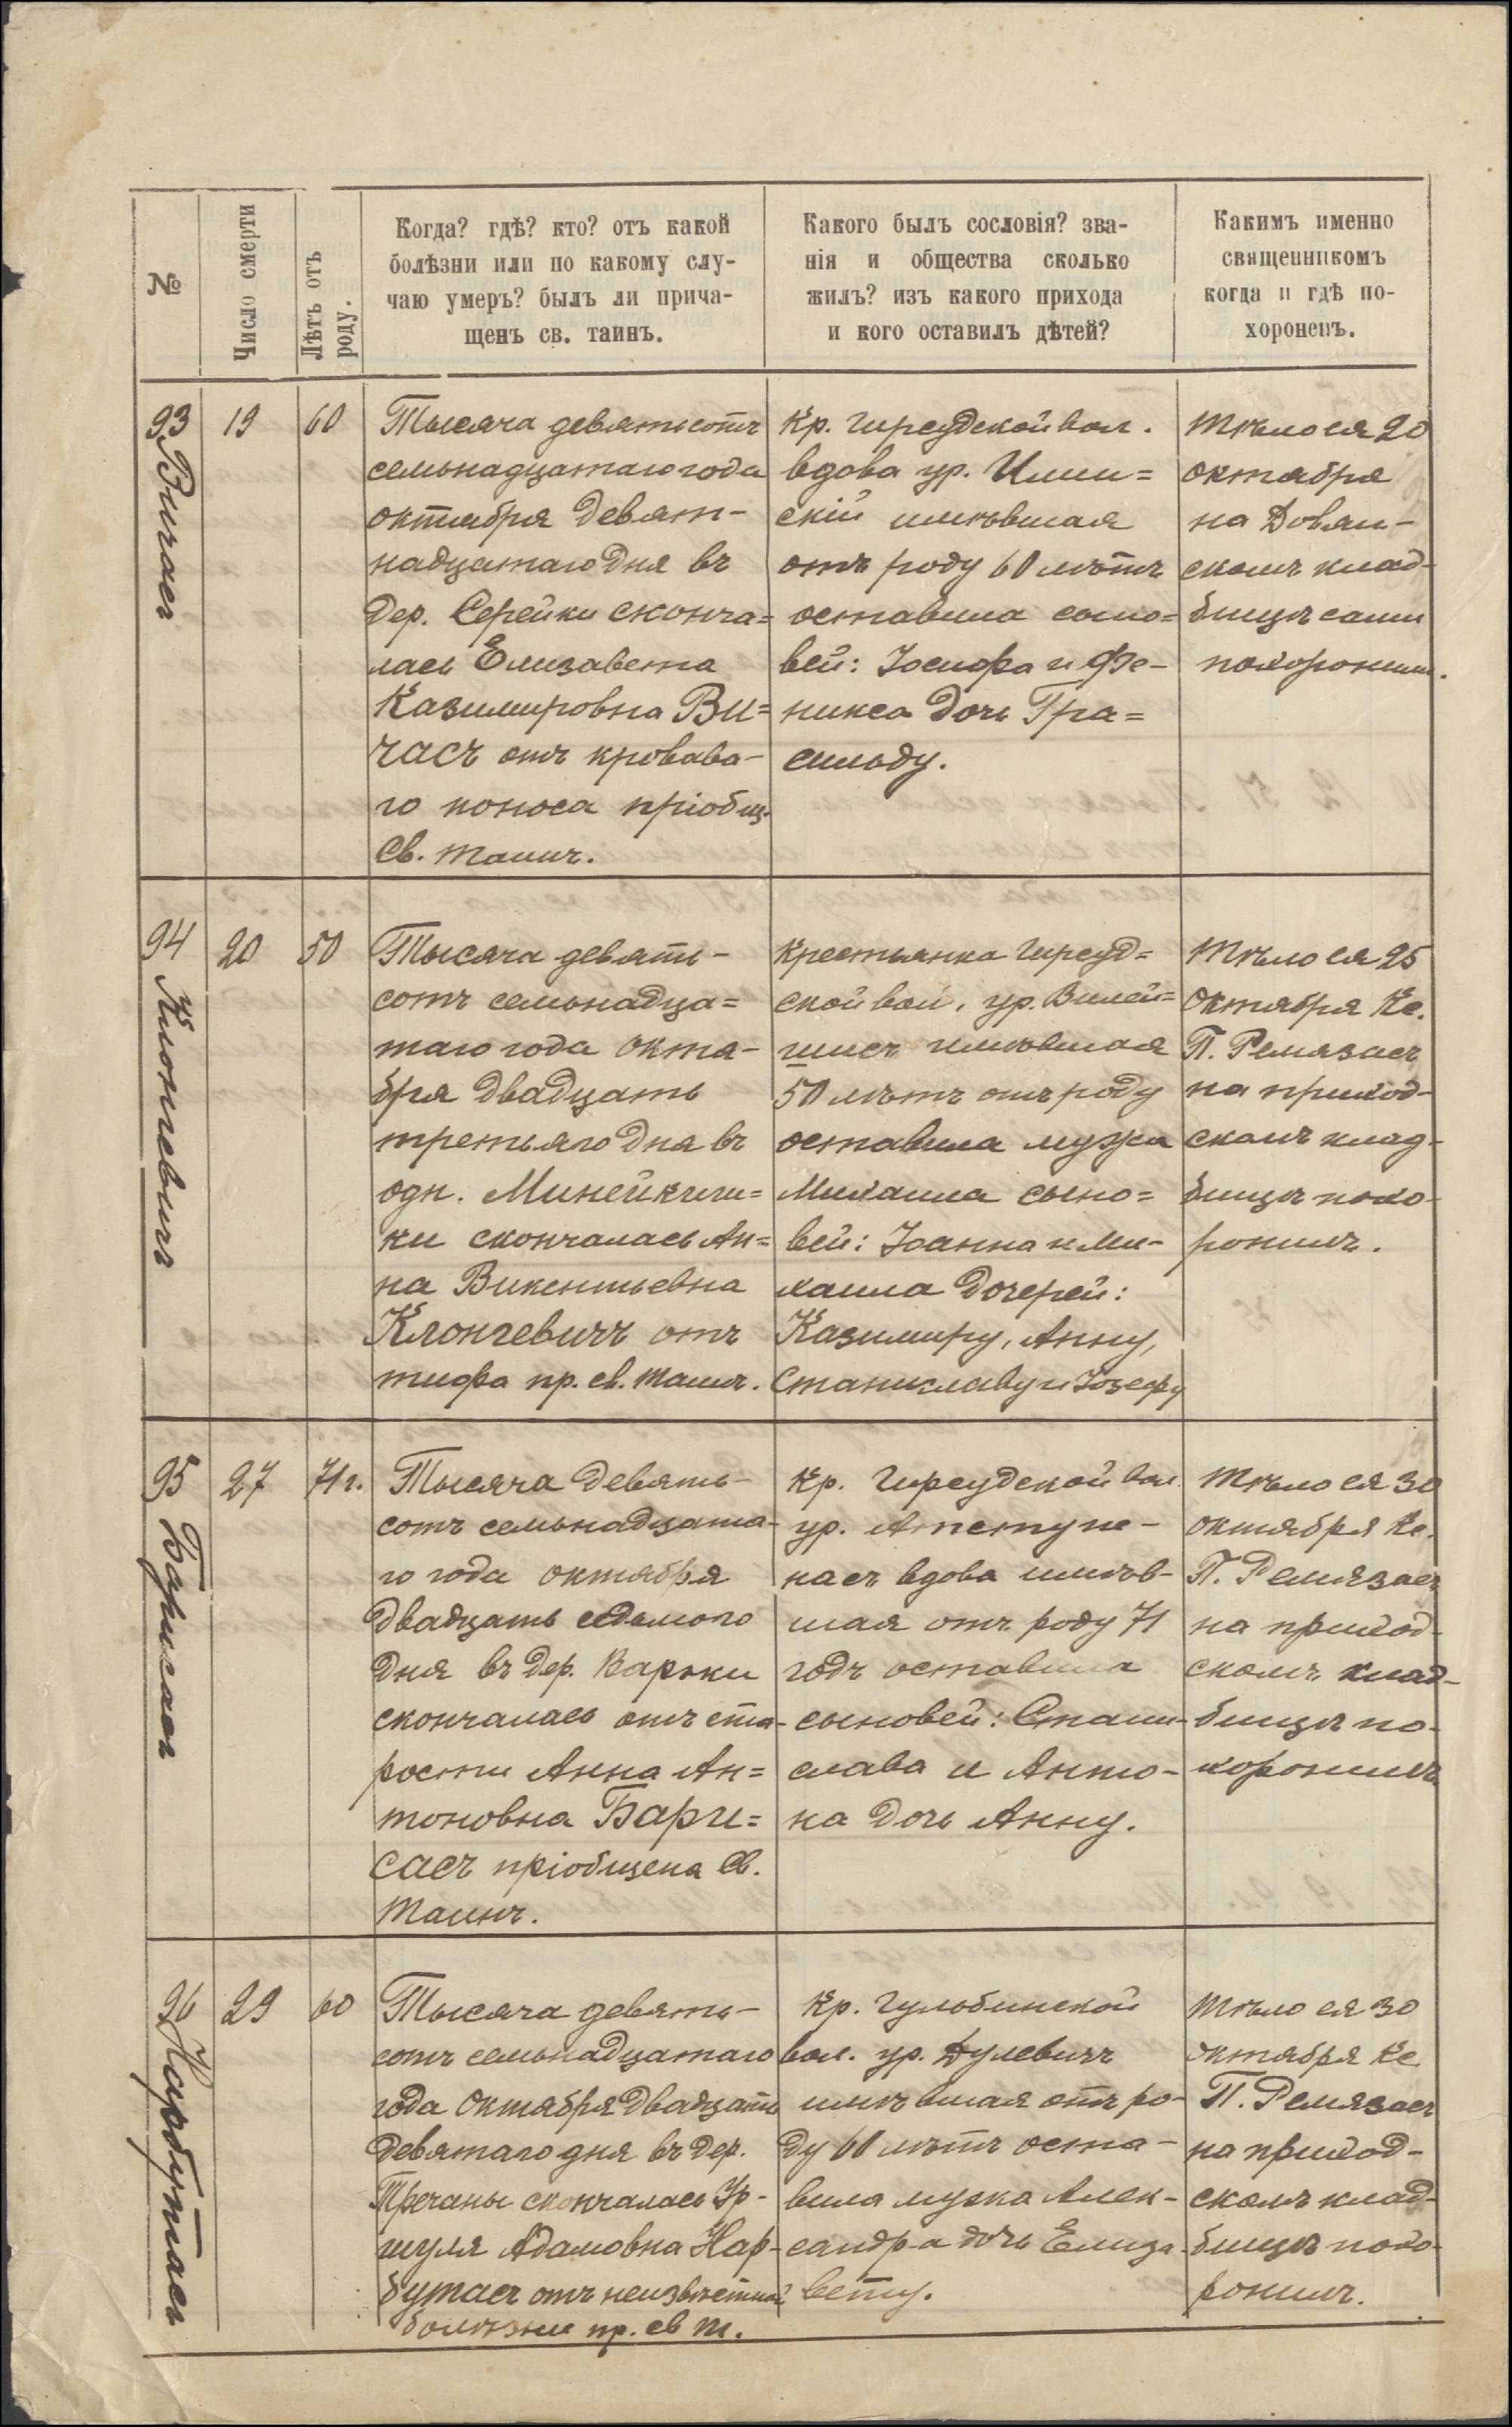 №
Число смерти
Лѣтъ отъ
роду.
Когда? гдѣ? кто? отъ какой
болѣзни или по какому слу-
чаю умеръ? былъ ли прича-
щенъ св. таинъ.
Какого былъ сословія? зва-
нія и общества сколько
жилъ? изъ какого прихода
и кого оставилъ дѣтей?
Какимъ именно
священникомъ
когда и гдѣ по-
хороненъ.
93
Вичасъ
19
60
Тысяча девятьсотъ
семьнадцатаго года
октября девят-
надцатаго дня въ
дер. Серейки сконча=
лась Елизавета
Казимировна Ви=
часъ отъ кровава-
го поноса пріобщ.
Св. таинъ.
Кр. Гирсудской вол.
вдова ур.
скій имѣвшая
отъ роду 60 лѣтъ
оставила сыно=
вей: Іосифа и Фе-
никса дочь Гра=
сильду.
Тѣло ея 20
октября
на Довян-
скомъ клад-
бищѣ сами
похоронили.
94
Клонгевичъ
20
50
Тысяча девять-
сотъ семьнадца=
таго года октя-
бря двадцать
третьяго дня въ
одн. Минейкишки=
ки скончалась Ан=
на Викентьевна
Клонгевичъ отъ
тифа пр. св. таинъ.
Крестьянка Гирсуд=
ской вол. ур. Вилей=
шисъ имѣвшая
50 лѣтъ отъ роду
оставила мужа
Михаила сыно=
вей: Іоанна и Ми-
хаила дочерей:
Казимиру, Анну,
Станиславу и Іозефу
Тѣло ея 25
октября Кс.
П. Ремязасъ
на приход-
скомъ клад-
бищѣ похо-
ронилъ.
95
Барисасъ
27
71 г.
Тысяча девять-
сотъ семьнадцата-
го года октября
двадцать седьмого
дня въ дер. Варжки
скончалась отъ ста-
рости Анна Ан=
тоновна Бари=
сасъ пріобщена св.
таинъ.
Кр. Гирсудской вол.
ур.
насъ вдова имѣв-
шая отъ роду 71
годъ оставила
сыновей: Стани-
слава и Анто-
на дочь Анну.
Тѣло ея 30
октября Кс.
П. Ремязасъ
на приход-
скомъ клад-
бищѣ по-
хоронилъ
96
Нарбутасъ
29
60
Тысяча девять-
сотъ семьнадцатаго
года Октября двадцать
девятаго дня въ дер.
Тречаны скончалась Ур-
шуля Адамовна Нар-
бутасъ отъ неизвѣстной
болѣзни пр. св т.
Кр. Гульбинской
вол. ур. Дулевичъ
имѣвшая отъ ро-
ду 60 лѣтъ оста-
вила мужа Алек-
сандра дочь Елиза-
вету.
Тѣло ея 30
октября Кс
П. Ремязасъ
на приход-
скомъ клад-
бищѣ похо-
ронилъ.